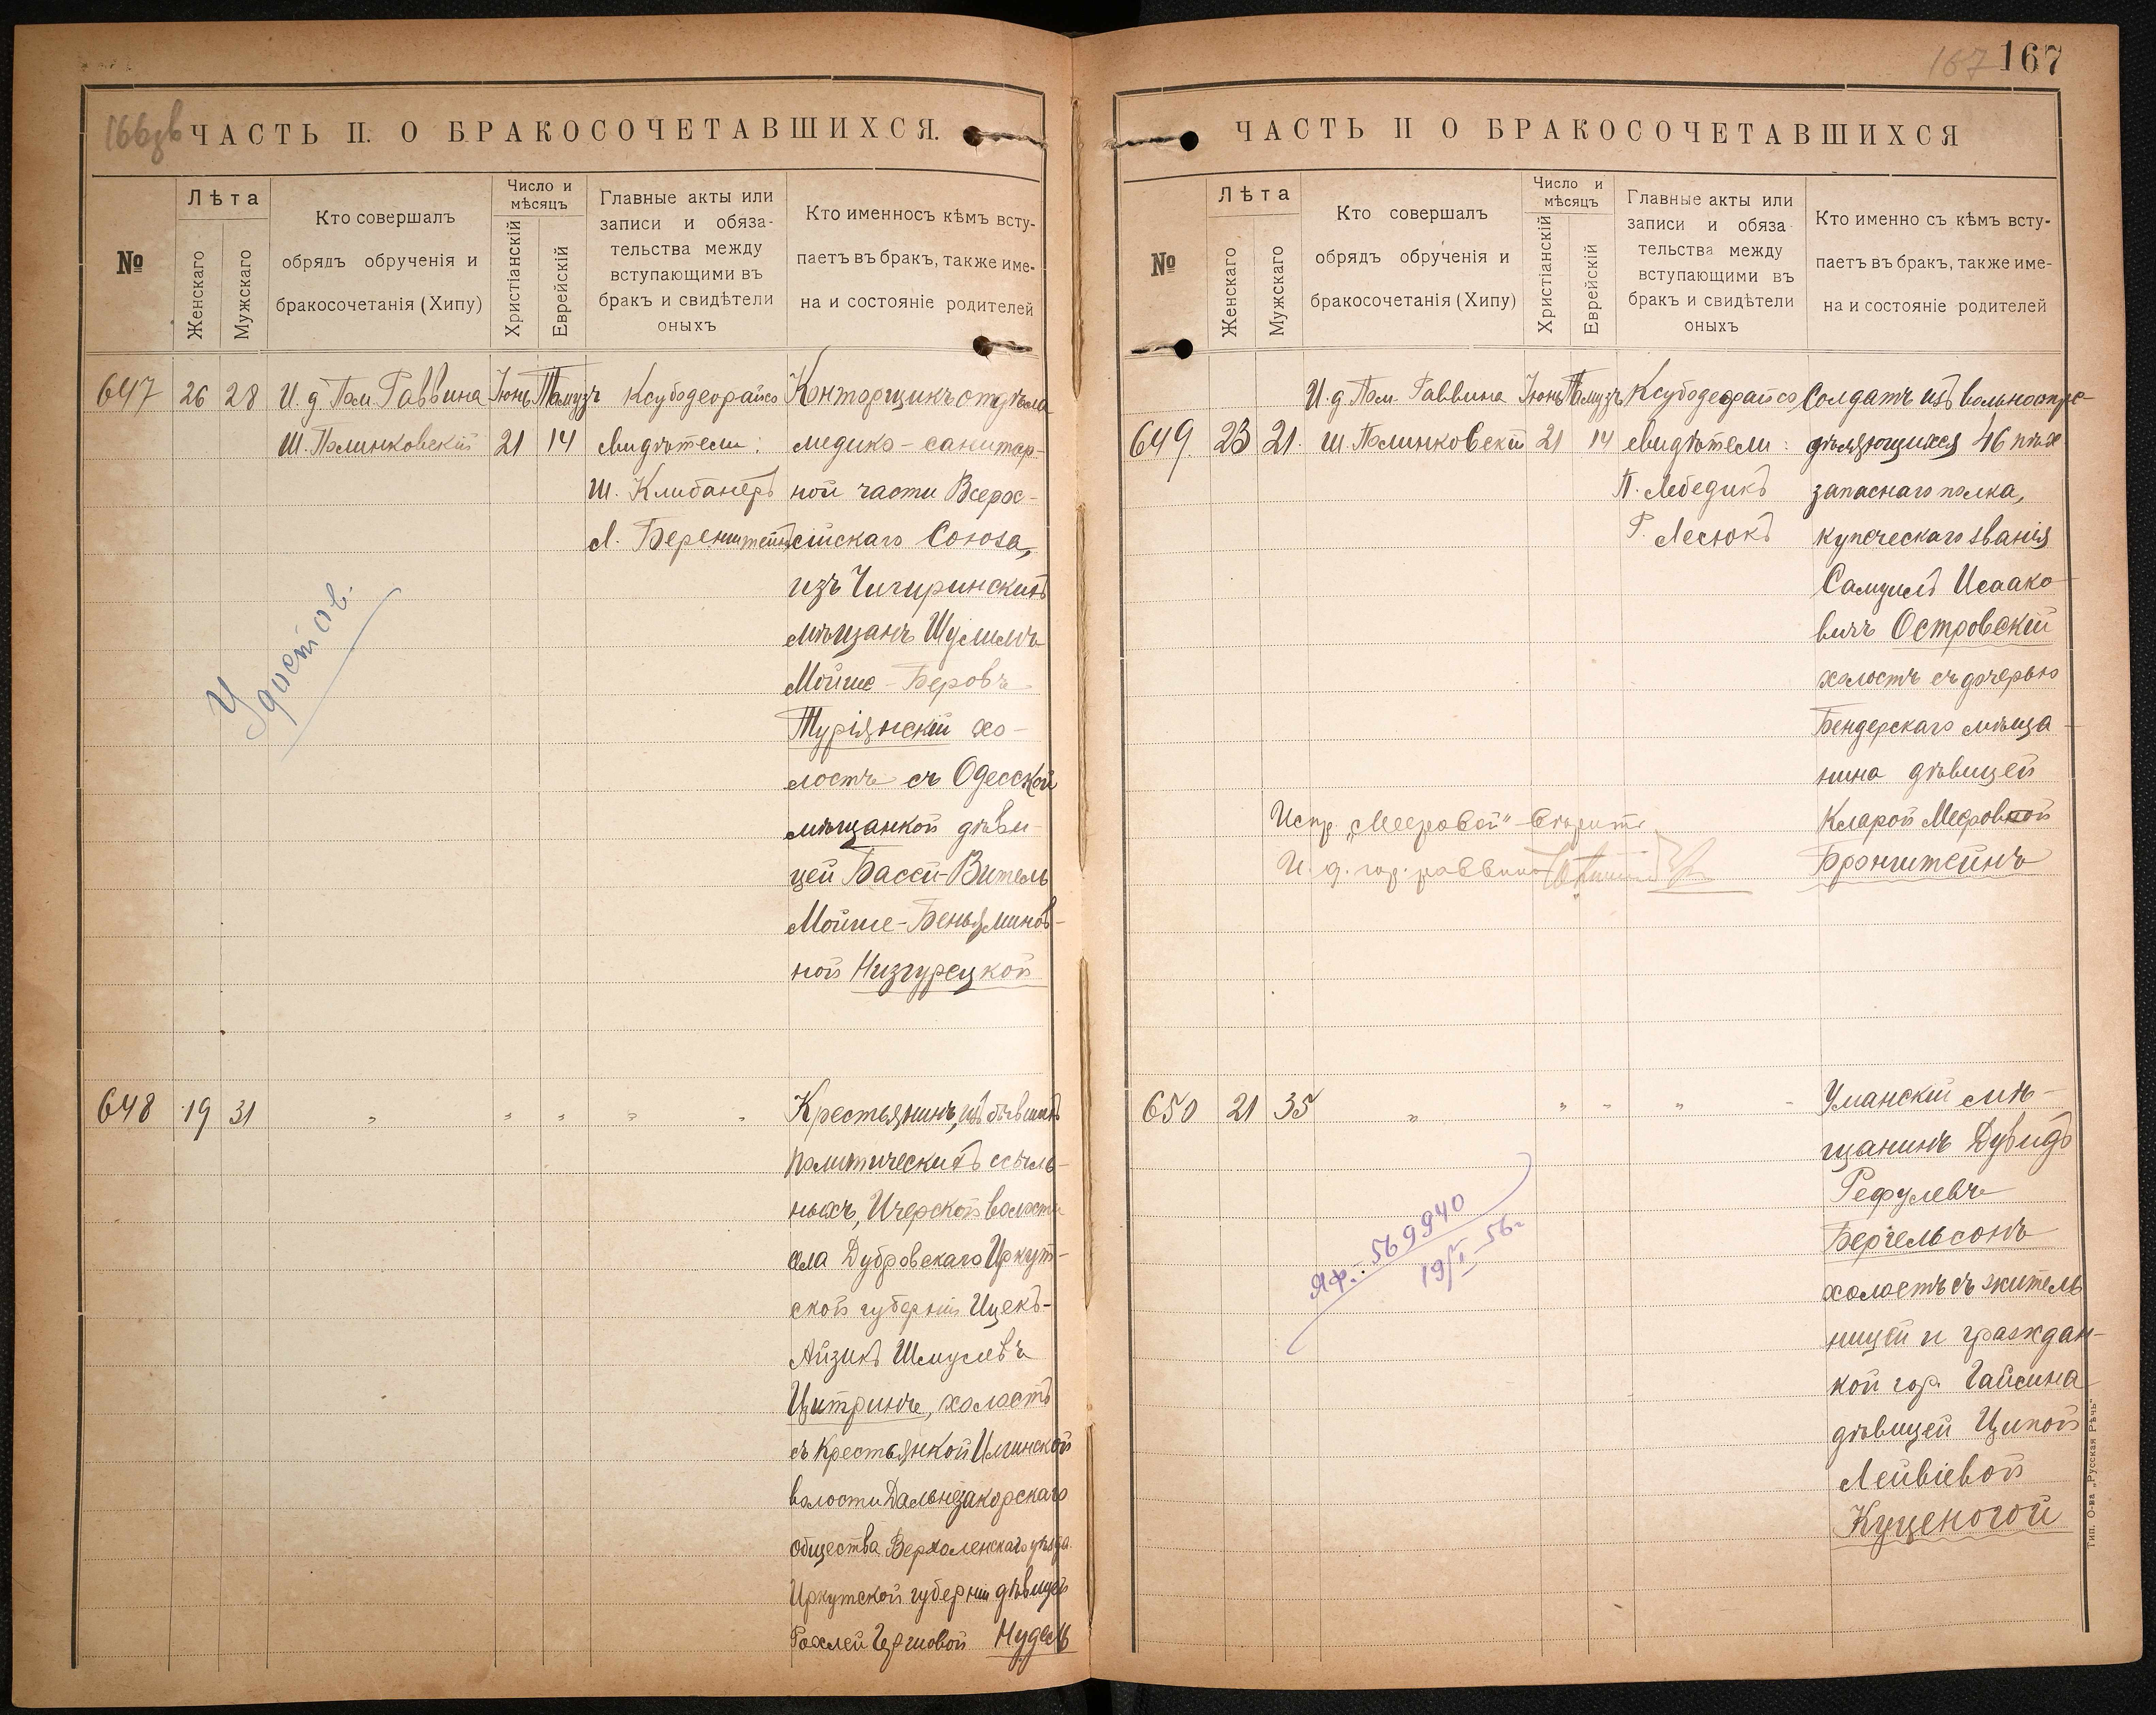 166зв
ЧАСТЬ II. О БРАКОСОЧЕТАВШИХСЯ.
№
Лѣта
Женскаго
Мужскаго
Кто совершалъ
обрядъ обрученія и
бракосочетанія (Хипу)
Число и
мѣсяцъ
Христіанскій
Еврейскій
Главные акты или
записи и обяза-
тельства между
вступающими въ
бракъ и свидѣтели
оныхъ
Кто именносъ кѣмъ всту-
паетъ въ бракъ, также име-
на и состояніе родителей
647 26 28 И. д. Пом. Раввина Іюнь Тамузъ Ксубодеорайсо
Ш. Полинковскій 21 14 свидѣтели:
Ш. Клибанеръ
Л. Беренштейнъ
Конторщикъ отдѣла
медико-санитар-
ной части Всерос-
сійскаго Союза,
изъ Чигиринскихъ
мѣщанъ Шулимъ
Мойше-Беровъ
Турiянскій хо-
лостъ съ Одесской
мѣщанкой дѣви-
цей Бассей-Витель
Мойше-Беньяминов-
ной Низгурецкой
Удостов.
648 19 31 " " " " "
Крестьянинъ, изъ бывшихъ
политическихъ ссыль-
ныхъ, Ичерской волости
села Дубровскаго Иркут-
ской губерніи Ицекъ-
Айзикъ Шмулевъ
Цитринъ, холостъ
съ крестьянкой Илгинской
волости Дальнезакорскаго
общества Верхоленскаго уѣзда
Иркутской губерніи дѣвицей
Рохлей Гершовой Нудель
167 167
ЧАСТЬ II О БРАКОСОЧЕТАВШИХСЯ
№
Лѣта
Женскаго
Мужскаго
Кто совершалъ
обрядъ обрученія и
бракосочетанія (Хипу)
Число и
мѣсяцъ
Христіанскій
Еврейскій
Главные акты или
записи и обяза
тельства между
вступающими въ
бракъ и свидѣтели
оныхъ
Кто именно съ кѣмъ всту-
паетъ въ бракъ, также име-
на и состояніе родителей
И. д. Пом. Раввина Іюнь Тамузъ Ксубодеорайсо
649 23 21. Ш. Полинковскій 21 14 свидѣтели:
П. Лебедикъ
Г. Лесюкъ
Солдатъ изъ вольноопре-
дѣляющихся 46 пѣх
запаснаго полка,
купеческаго званія
Самуилъ Исаако-
вичъ Островскій
холостъ съ дочерью
Бендерскаго мѣща-
нина дѣвицей
Кларой Мееровной
Бронштейнъ
Испр. „Мееровой" вѣрить
И. д. гор. раввина
650 21 35 " " " " "
Уманскій мѣ-
щанинъ Дувидъ
Рефулевъ
Бергельсонъ
холостъ съ житель
ницей и граждан-
кой гор. Гайсина
дѣвицей Ципой
Лейвіевой
Куценогой
ЯФ.: 569940
19/I 56г
Тип. О-ва „Русская Рѣчь"